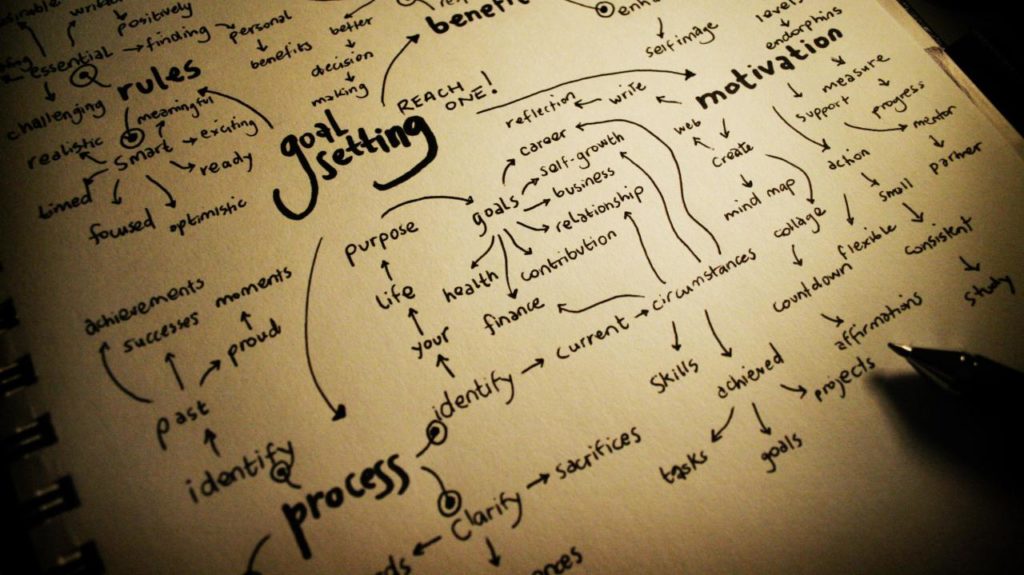 positively
essential
finding
personal
benefits
better
decision
making
self image
levels
endorphins
rules
challenging
meaningful
realistic
smart
exciting
ready
timed
focused
optimistic
goal
setting
REACH
ONE!
motivation
measure
progress
support
mentor
partner
action
small
consistent
study
flexible
reflection
write
web
create
mind map
collage
countdown
affirmations
career
self-growth
business
relationship
contribution
goals
health
finance
purpose
life
your
identify
current
circumstances
skills
achieved
projects
tasks
goals
achievements
successes
moments
proud
past
identify
process
Clarify
sacrifices